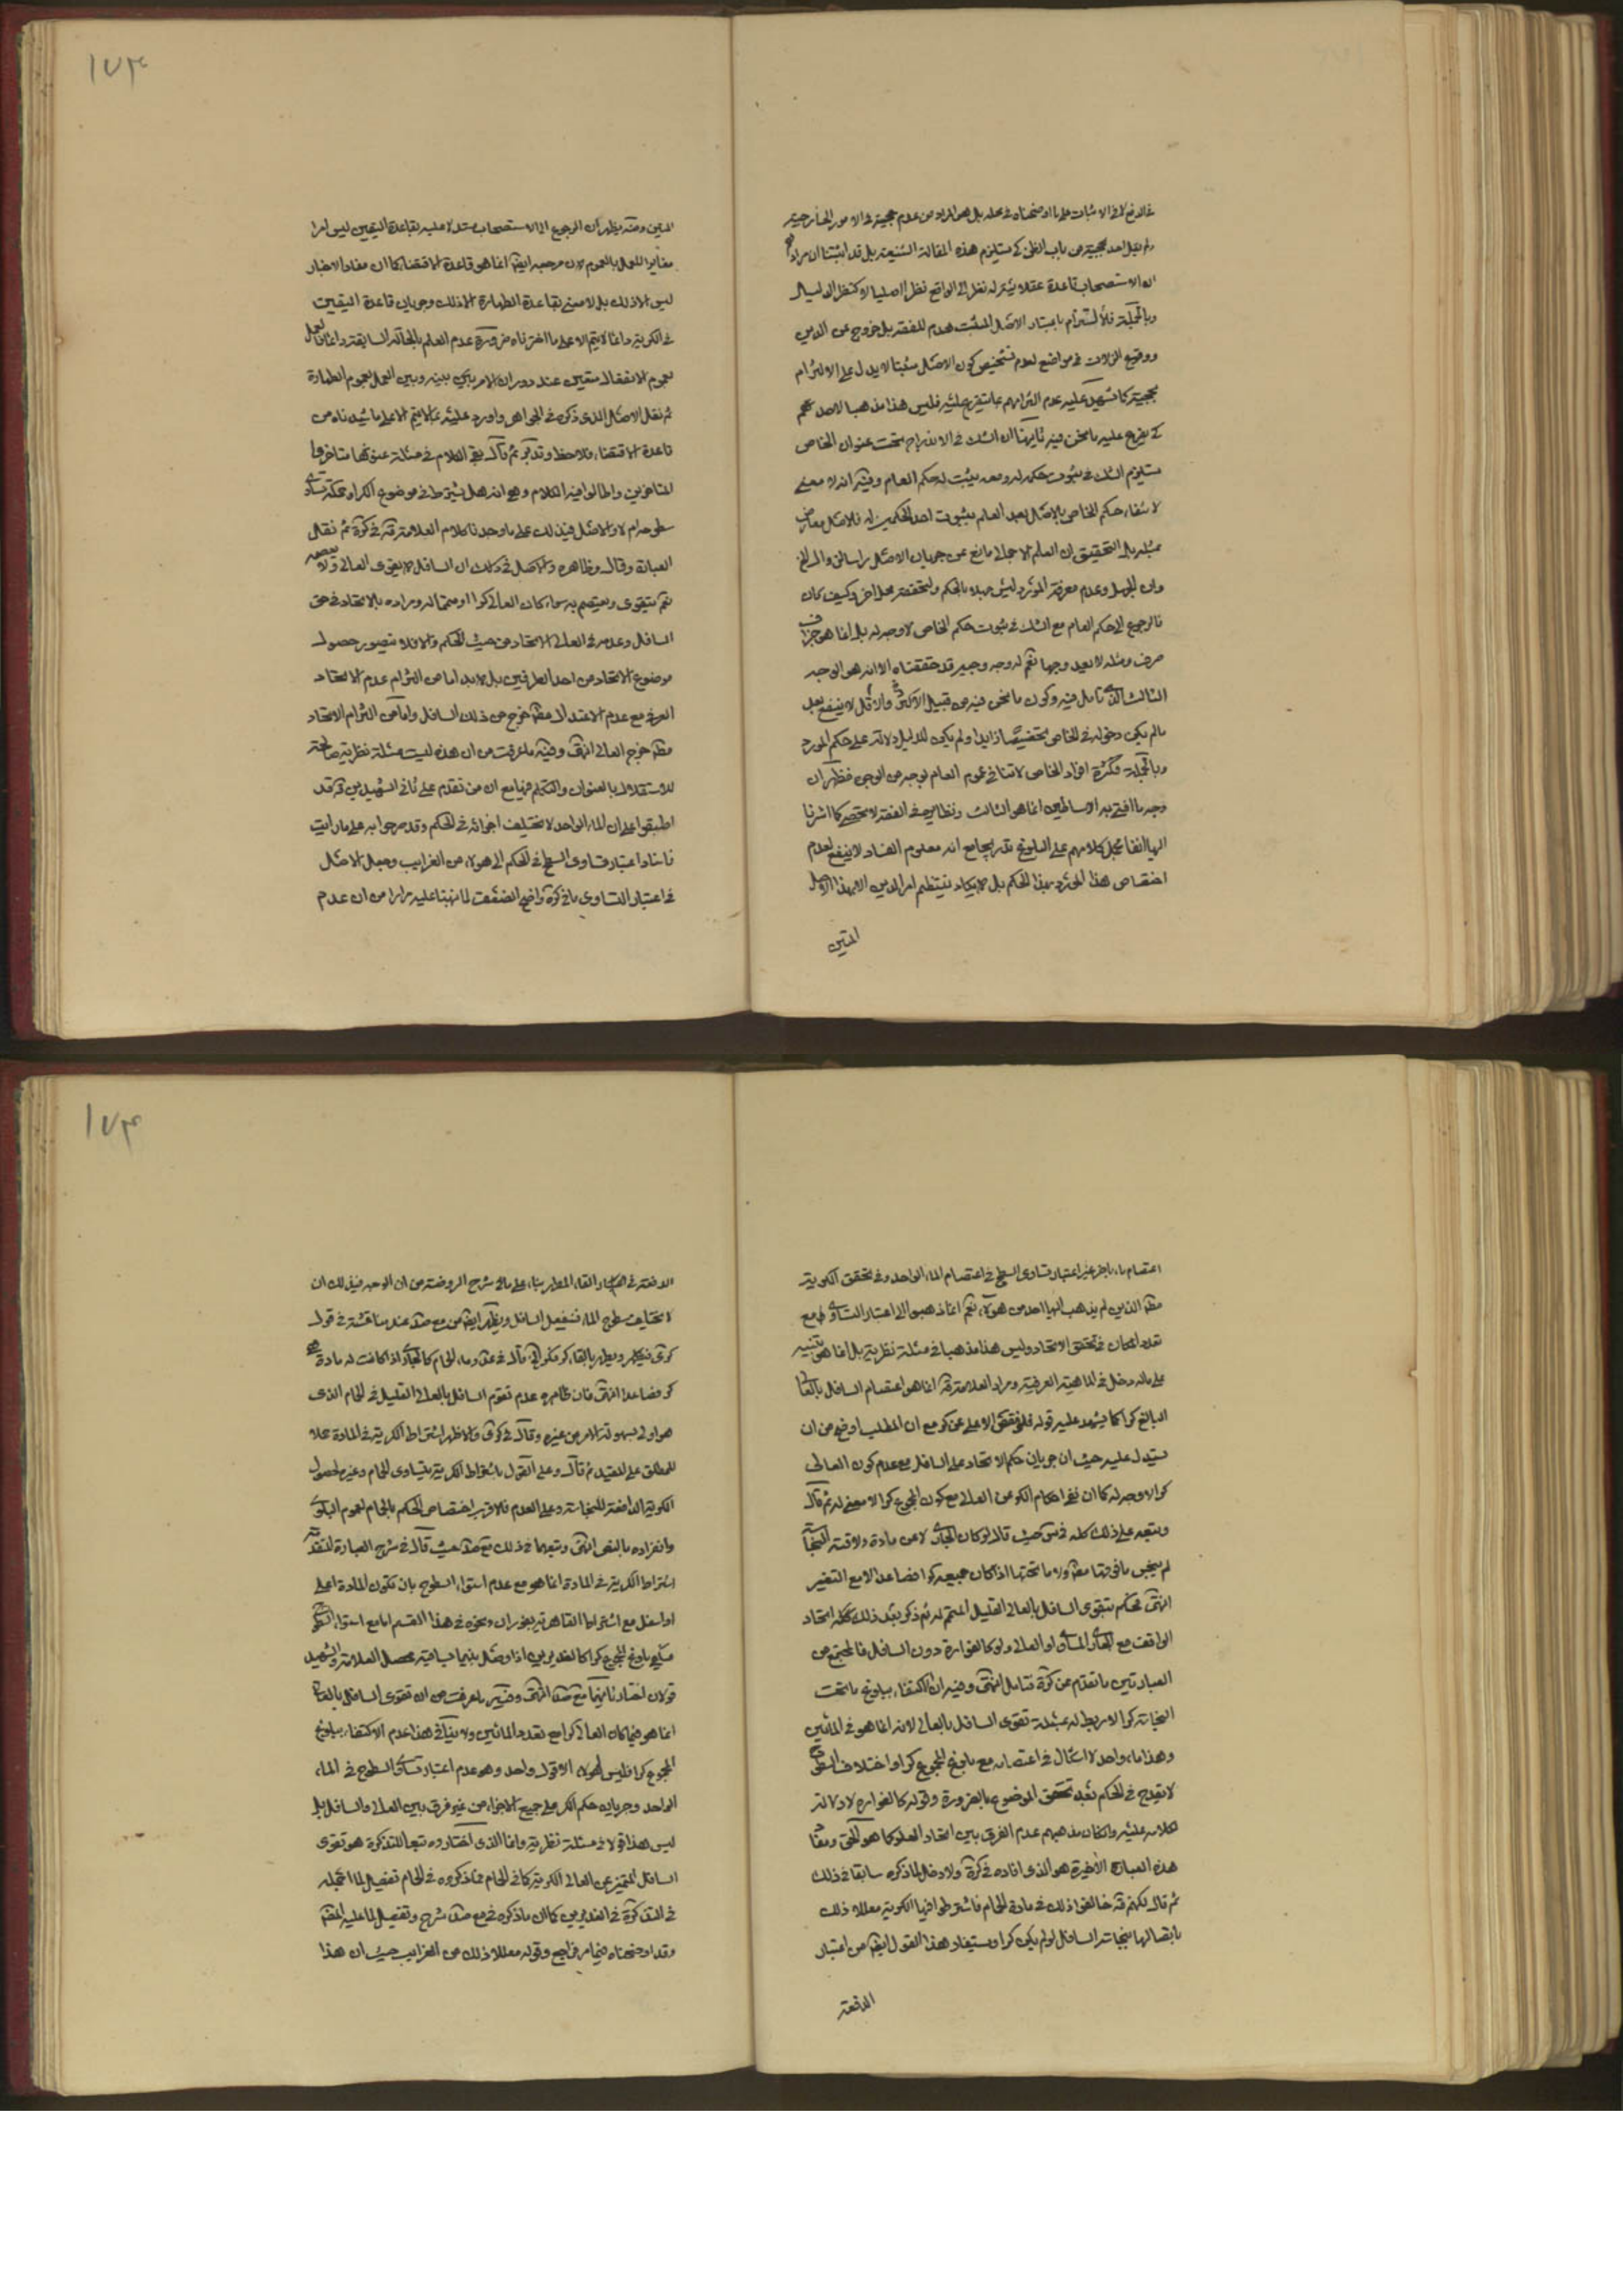 ١٧٣
في الدفع لا في الاثبات على ما اوضحناه في محله بل هو المراد من عدم حجيته في الامور الخارجية
ولم يقل احد بحجيته من باب الظن كي يستلزم هذه المقالة الشنيعة بل قد اثبتنا ان مرادهم
ان الاستصحاب قاعدة عقلائية
وبالجملة فالالتزام باعتبار الاصل المثبت هدم للفقه بل خروج عن الدين
ووقوع الزلات في مواضع لعدم تشخيص كون الاصل مثبتا لا يدل على الالتزام
بحجيته كما يشهد عليه عدم التزامهم بما يتفرع عليه فليس هذا مذهبا لاحد منهم
كي يفرع عليه ما نحن فيه ثانيها ان الشك في الاندراج تحت عنوان الخاص
مستلزم الشك في ثبوت حكمه له ومعه يثبت له حكم العام وفيه انه لا معنى
لانتفاء حكم الخاص بالاصل بعد العلم بثبوت احد الحكمين له فالاصل معارض
بمثله بل التحقيق ان العلم الاجمالي مانع عن جريان الاصل راسا
وان الجهل وعدم معرفة المورد ليس جهلا بالحكم ولتحقيقه محل اخر وكيف كان
فالرجوع الى حكم العام مع الشك في ثبوت حكم الخاص لا وجه له بل انما هو جزاف
صرف ومثله لا يعد وجها نعم له وجه وجيه قد حققناه الا انه هو الوجه
الثالث الذي تامل فيه وكون ما نحن فيه من قبيل الاكثر والاقل لا ينفع بعد
ما لم يكن دخوله في الخاص تخصيصا زايدا ولم يكن للدليل دلالة على حكم المورد
وبالجملة فكثرة افراد الخاص لا تنافي عموم العام بوجه من الوجوه فظهر ان
وجه ما افتى به الاساطين انما هو الثالث ونظايره في الفقه لا تحصى كما اشرنا
اليها انفا فحمل كلامهم على
اختصاص هذا المورد بهذا الحكم بل لا يكاد ينتظم امر الدين الا بهذا الاصل
المتين
المتين ومنه يظهر ان الرجوع الى الاستصحاب مستدلا عليه بقاعدة اليقين ليس امرا
مغايرا للعمل بالعموم لان مرجعه ايضا انما هو قاعدة الاقتضاء كما ان مفاد الاخبار
ليس الا ذلك بل لا معنى لقاعدة الطهارة الا ذلك وجريان قاعدة اليقين
في الكرية دائما لا يتم الا على ما اخترناه ضرورة عدم العلم بالحالة السابقة دائما فالعمل
بعموم الانفعال متعين عند دوران الامر بينه وبين العمل بعموم الطهارة
ثم نقل الاصل الذي ذكره في الجواهر واورد عليه بما لا يتم الا على ما شيدناه من
قاعدة الاقتضاء فلاحظ وتدبر ثم قال بقي الكلام في مسئلة عنونها متاخروا
المتاخرين واطالوا فيه الكلام وهي انه هل يشترط في موضوع الكر او حكمه تساوي
سطوحه ام لا والاصل في ذلك على ما وجدنا كلام العلامة في كرة ثم نقل
العبارة وقال وظاهره
نعم يتقوى ويعتصم به سواء كان العالي كرا او متمما له ومراده بالاتحاد في حق
السافل وعدمه في العالي الاتحاد من حيث الحكم والا فلا يتصور حصول
موضوع الاتحاد من احد الطرفين بل لا بد اما من التزام عدم الاتحاد
العرفي مع عدم الاعتدال مط خرج من ذلك السافل واما من التزام الاتحاد
مط خرج العالي انتهى وفيه ما عرفت من ان هذه ليست مسئلة نظرية صالحة
للاستقلال بالعنوان والتكلم فيها مع ان من تقدم على ثاني الشهيدين قد
اطبقوا على ان الماء الواحد لا يختلف اجزائه في الحكم وقد صرحوا به على ما رايت
فاسناد اعتبار تساوي السطح في الحكم الى هؤلاء من الغرايب وجعل الاصل
في اعتبار التساوي ما في كرة واضح الضعف لما نبهنا عليه مرارا من ان عدم
١٧٤
اعتصام ماء باخر غير اعتبار تساوي السطح في اعتصام الماء الواحد وفي تحقق الكرية
مط الذين لم يذهب اليها احد من هؤلاء نعم انما ذهبوا الى اعتبار التساوي مع
تعدد المكان في تحقق الاتحاد وليس هذا مذهبا في مسئلة نظرية بل انما هو تنبيه
على ماله دخل في الماهية العرفية ومراد العلامة انما هو اعتصام السافل بالعالي
البالغ كرا كما يشهد عليه قوله فلو نقص الاعلى عن كر مع ان المطلب اوضح من ان
يستدل عليه حيث ان جريان حكم الاتحاد على السافل مع عدم كون العالي
كرا لا وجه له كما ان نفي احكام الكر عن العالي مع كون المجموع كرا لا معنى له ثم قال
وتبعه على ذلك كله في س حيث قال لو كان الجاري لا عن مادة ولاقته النجاسة
لم ينجس ما فوقها مط ولا ما تحتها اذا كان جميعه كرا فصاعدا الا مع التغير
انتهى فحكم بتقوى السافل بالعالي القليل المتمم له ثم ذكر بعد ذلك كله اتحاد
الواقف مع الجاري المساوي او العالي ولو كالفوارة دون السافل فالمجتمع من
العبارتين ما تقدم عن كرة فتامل انتهى وفيه ان اكتفاء ببلوغ ما تحت
النجاسة كرا لا ربط له بمسئلة تقوى السافل بالعالي لانه انما هو في المائين
وهذا ماء واحد لا اشكال في اعتصامه مع بلوغ المجموع كرا واختلاف السطوح
لا يقدح في الحكم بعد تحقق الموضوع بالضرورة وقوله كالفوارة لا دلالة
لكلامه عليه وان كان مذهبهم عدم الفرق بين اتحاد العلو كما هو الحق ومفاد
هذه العبارة الاخيرة هو الذي افاده في كرة ولا دخل لما ذكره سابقا في ذلك
ثم قال لكنهم قد خالفوا ذلك في مادة الحمام فاشترطوا فيها الكرية معللا ذلك
باتصالها بنجاسة السافل لو لم يكن كرا ويستفاد هذا القول ايضا من اعتبار
الدفعة
الدفعة في القاء المطهر بناء على ما في شرح الروضة من ان الوجه في ذلك ان
لا تختلف سطوح الماء فينفعل السافل ويظهر ايضا من مع صد عند مناقشته في قول
كر فصاعدا انتهى فان ظاهره عدم تقوم السافل بالعالي القليل في الحمام الذي
هو اولى بسهولة الامر من غيره وقال في كرى والاظهر اشتراط الكرية في المادة حملا
للمطلق على المقيد ثم قال وعلى القول باشتراط الكرية يتساوى الحمام وغيره لحصول
الكرية الدافعة للنجاسة وعلى العدم فالاقرب اختصاص الحكم بالحمام لعموم البلوى
وانفراده بالنص انتهى وتبعهما في ذلك مع صد حيث قال في شرح العبارة المتقدمة
اشتراط الكرية في المادة انما هو مع عدم استواء السطوح بان تكون المادة اعلى
او اسفل مع اشتراط القاهرية بفوران ونحوه في هذا القسم اما مع استواء السطوح
فيكفي بلوغ المجموع كرا كالغديرين اذا وصل بينهما بساقية فحصل للعلامة والشهيد
قولان اختار ثانيهما مع صد انتهى وفيه ما عرفت من ان تقوى السافل بالعالي
انما هو فيما كان العالي كرا مع تعدد المائين ولا ينافي هذا عدم الاكتفاء ببلوغ
المجموع كرا فليس لهؤلاء الا قول واحد وهو عدم اعتبار تساوي السطوح في الماء
الواحد وجريان حكم الكر على جميع الاجزاء من غير فرق بين العالي والسافل بل
ليس هذا قولا في مسئلة نظرية وانما الذي اختاروه تبعا للتذكرة هو تقوى
السافل المتميز عن العالي الكرية كما في الحمام فما ذكروه في الحمام تفصيل لما اجمله
في التذكرة في الغديرين كما ان ما ذكره في مع صد شرح وتفصيل لما عليه المحقق
وقد اوضحناه فيما مر فراجع وقوله معللا ذلك من الغرايب حيث ان هذا